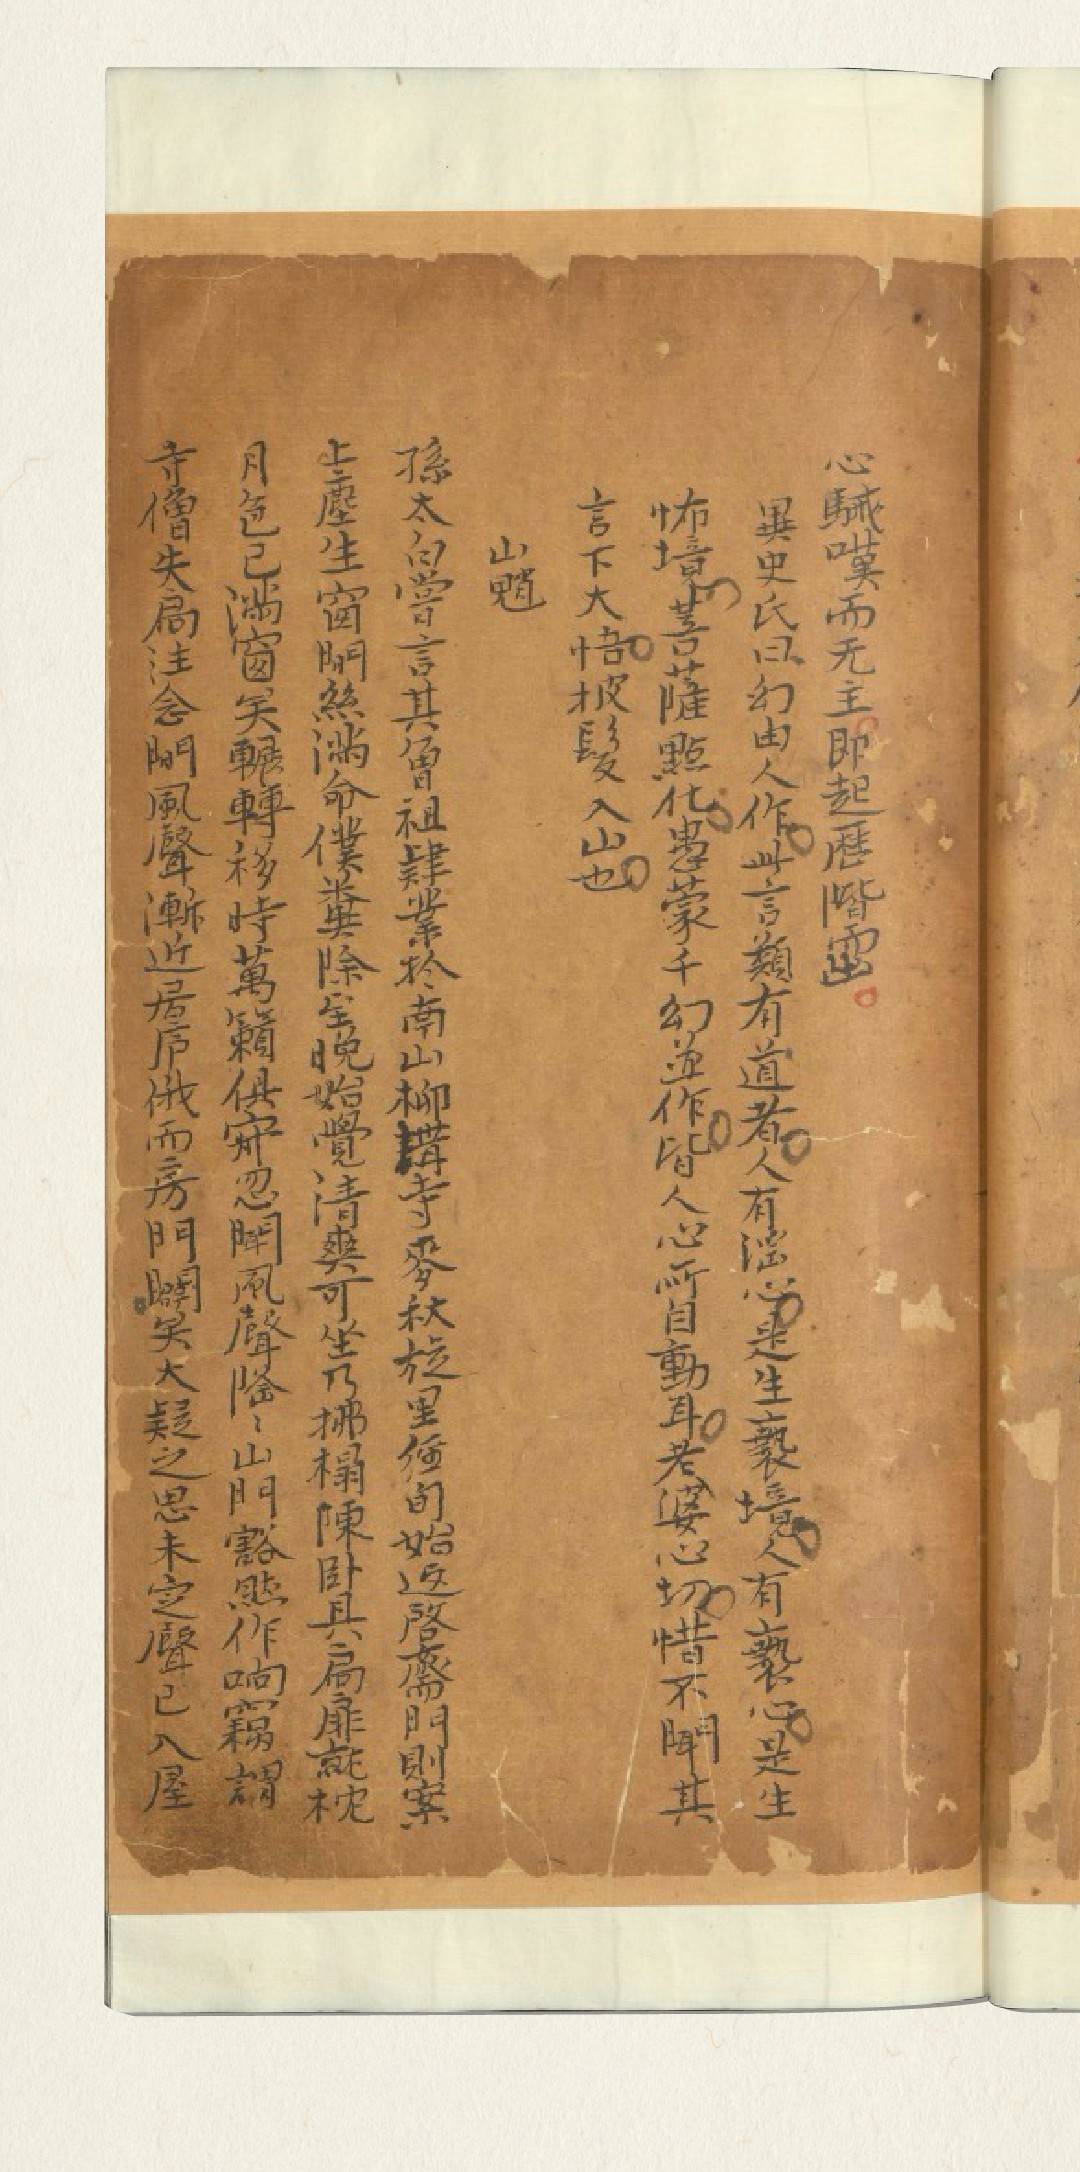 心駴嘆而无主即起歷階而出
異史氏曰幻由人作此言類有道者人有淫心是生褻境人有褻心是生
怖境菩薩點化愚蒙千幻並作皆人心所自動耳老婆心切惜不聞其
言下大悟披髮入山也
山魈
孫太白嘗言其曾祖肄業於南山柳溝寺麥秋旋里經旬始返啓齋門則案
上塵生窗間絲滿命僕糞除至晚始覺清爽可坐乃拂榻陳臥具扃扉就枕
月色已滿窗矣輾轉移時萬籟俱寂忽聞風聲隆〻山門豁然作响竊謂
寺僧失扃注念間風聲漸近居序俄而房門闢矣大疑之思未定聲已入屋